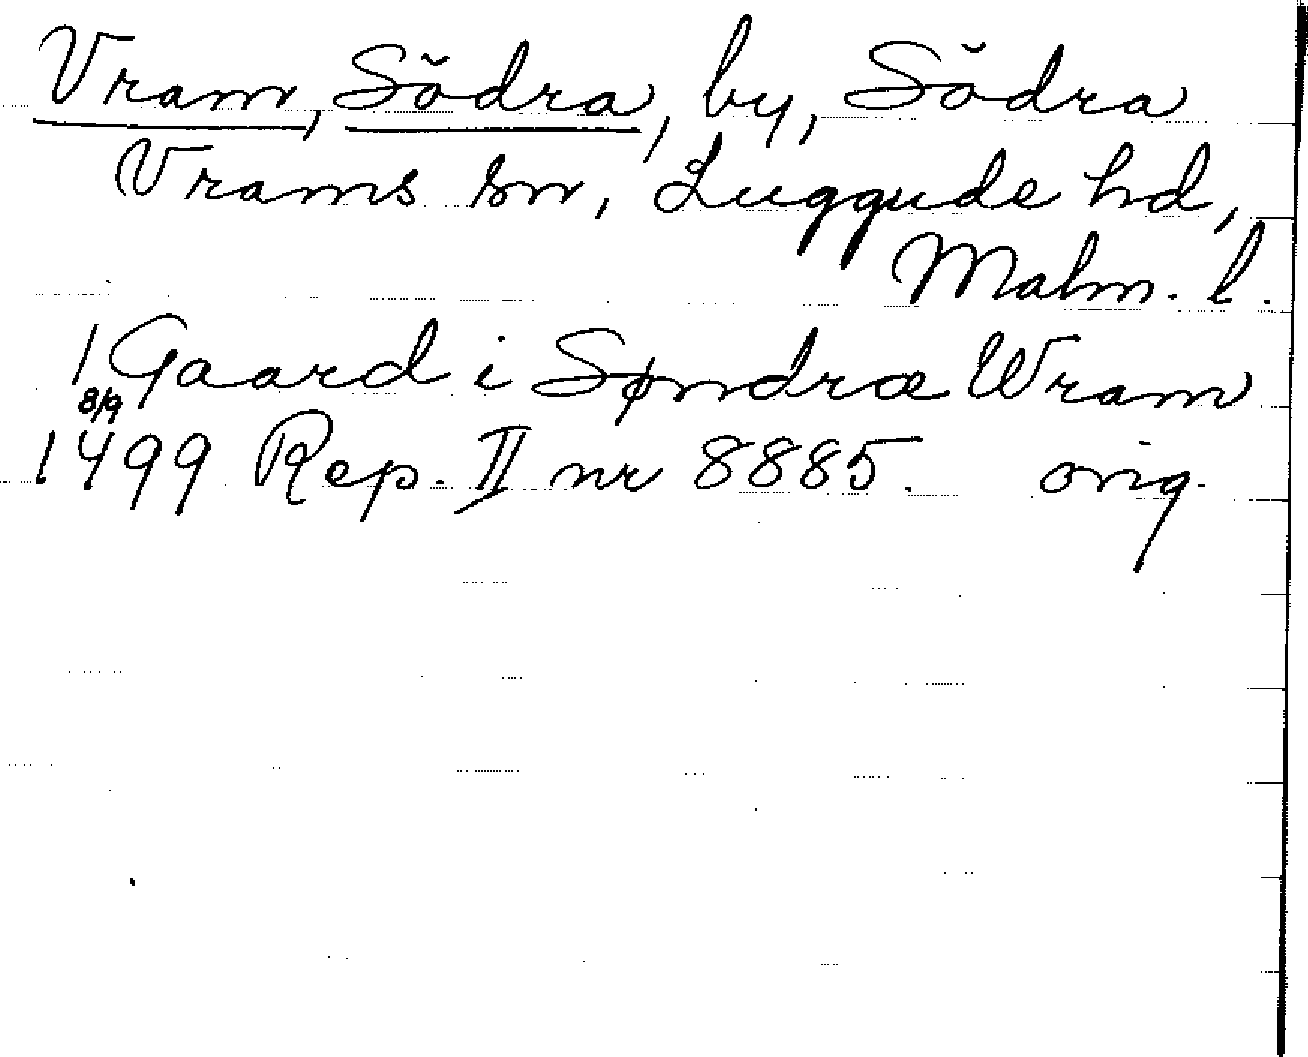 Vram, Södra, by, Södra
Vrams sn, Luggude hd,
Malm. l.
1 Gaard i Søndræ Wram
8/9
1499 Rep. II nr 8885. orig.